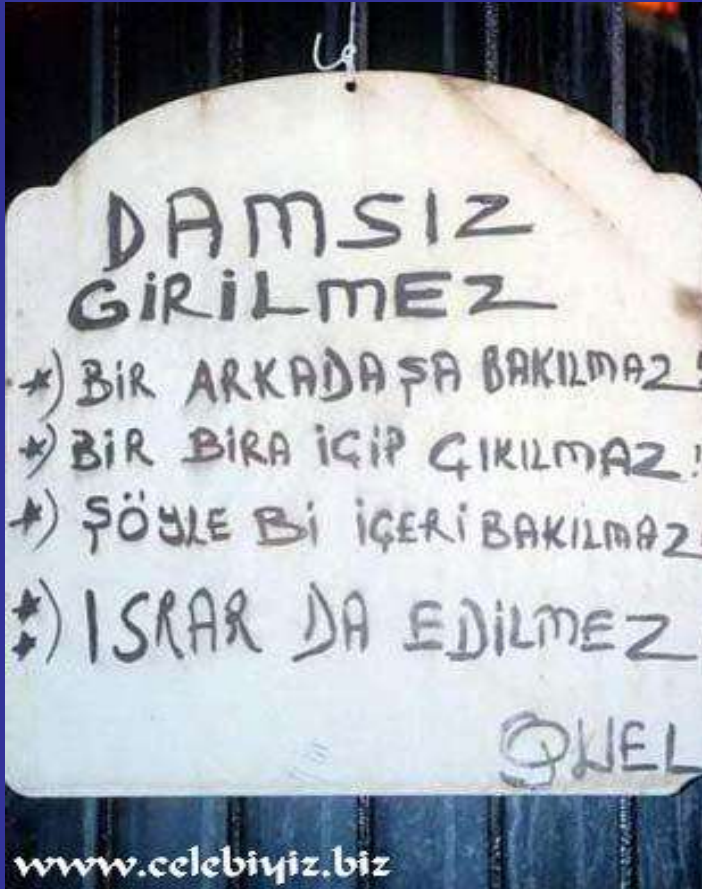 DAMSIZ
GİRİLMEZ
*) BİR ARKADAŞA BAKILMAZ!
*) BİR BİRA İÇİP ÇIKILMAZ!
*) ŞÖYLE Bİ İÇERİ BAKILMAZ!
**) ISRAR DA EDİLMEZ
www.celebiyiz.biz